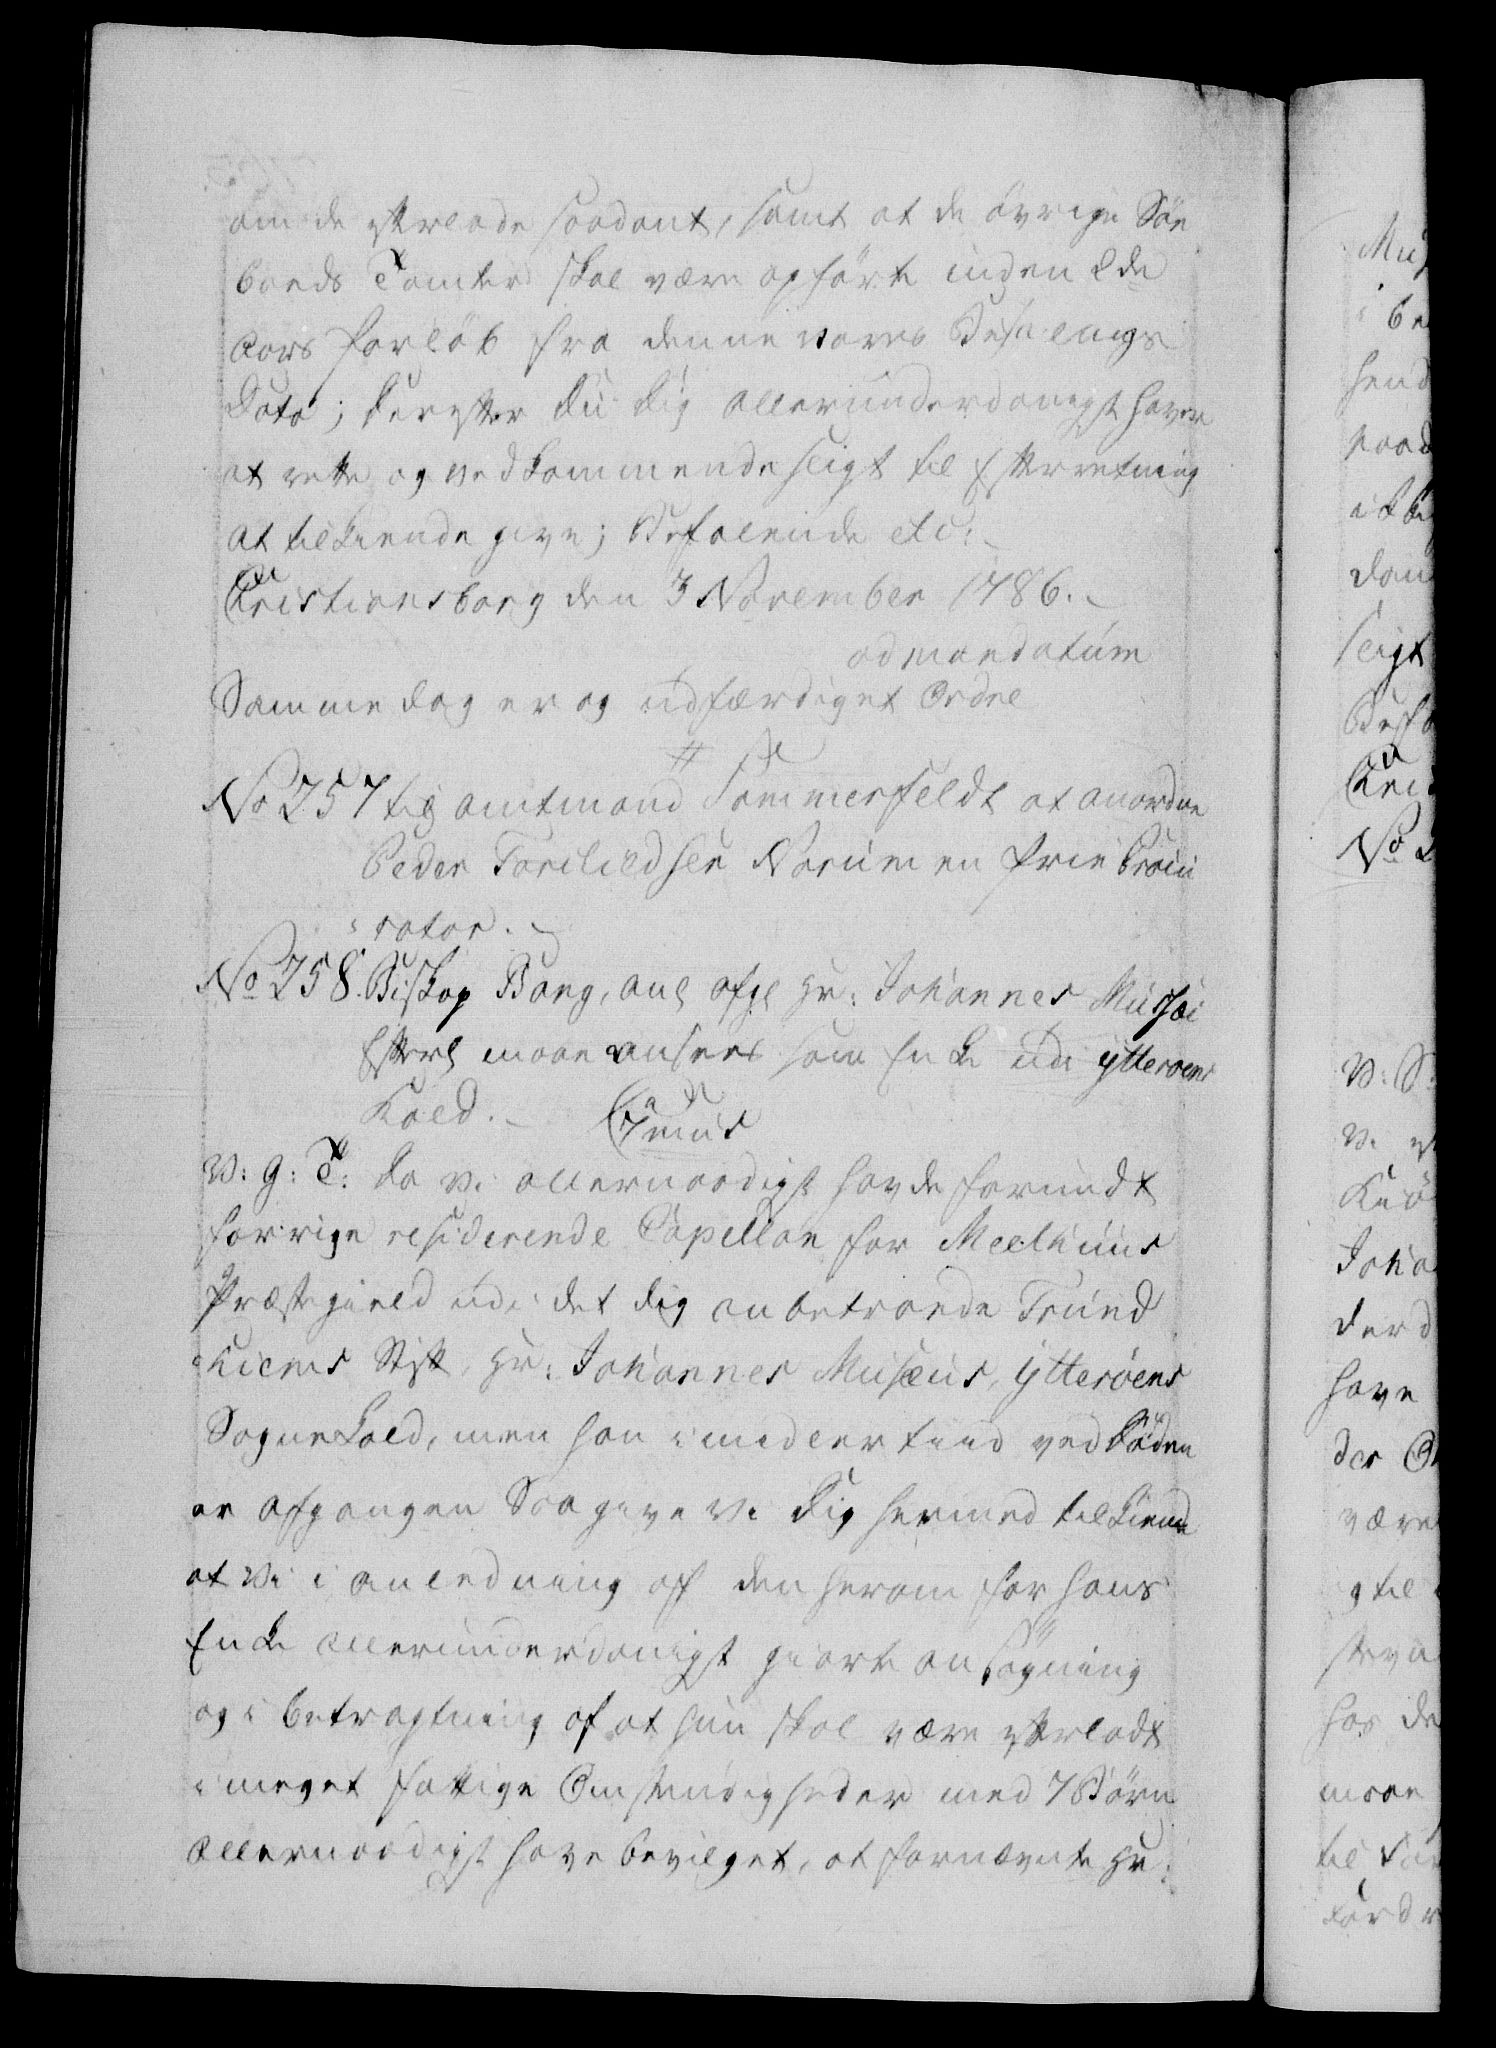 om de efterlade saadant, samt at de övrige Söe
boeds Tomter skal være opförte inden 2de
Aars Forlöb fra denne vores Befalings
Dato; derefter Du dig allerunderdanigst haver
at rette og vedkommende sligt til Efterretning
at tilkiende give; Befalende etc:
Christiansborg den 3 November 1786.
ad mandatum
Samme dag er og udfærdiget Ordre
No 257 til amtmand Sommerfeldt at anordne
Peder Torkildsen Norum en frie Procu
rator.
No 258. Biskop Bang, ang afg Hr: Johannes Mussæi
Efterl maae ansees som Enke udi Ytteröens
Kald.
C 7mus
V: G: T: Da Vi allernaadigst havde forundt
forrige residerende Capellan for Meelhuus
Præstegield udi det dig anbetroede Trund
hiems Stift, Hr: Johannes Musæus, Ytteröens
Sogne Kald, men han imidlertiid ved Döden
er afgangen Saa give Vi dig hermed tilkiende
at Vi i anledning af den herom for hans
Enke allerunderdanigst giorte ansögning
og i betragtning af at hun skal være efterladt
i meget fattige Omstændigheder med 7 Börn
allernaadigst have bevilget, at fornævnte Hr: